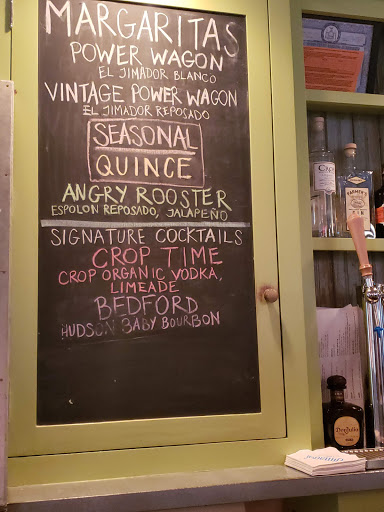 MARGARITAS
POWER WAGON
EL JIMADOR BLANCO
VINTAGE POWER WAGON
EL JIMADOR REPOSADO
SEASONAL
QUINCE
ANGRY ROOSTER
ESPOLON REPOSADO, JALAPEÑO
SIGNATURE COCKTAILS
CROP TIME
CROP ORGANIC VODKA,
LIMEADE
BEDFORD
HUDSON BABY BOURBON
CROP
FARMER'S
Don Julio